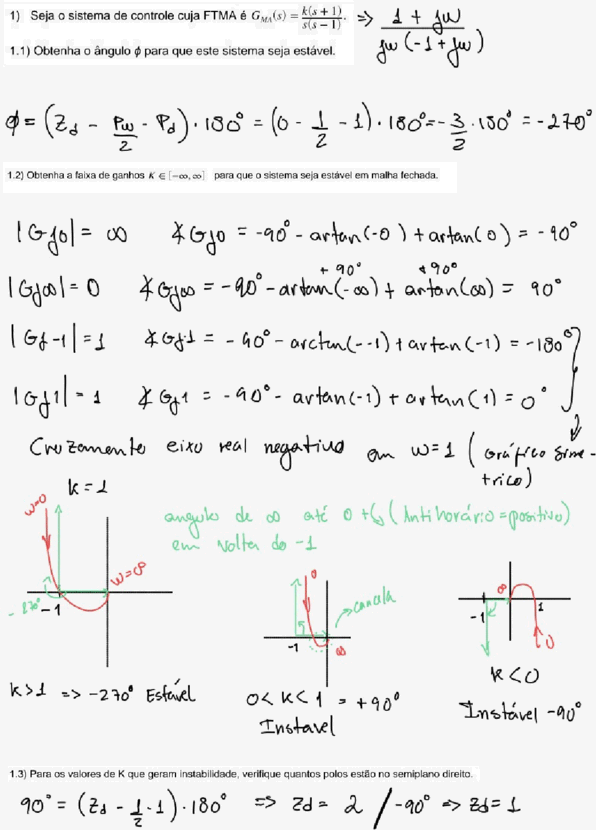 1) Seja o sistema de controle cuja FTMA é G_MA(s) = k(s+1)/s(s−1). => 1 + jw / jw(-1+jw)
1.1) Obtenha o ângulo ϕ para que este sistema seja estável.
ϕ = (Zd - Pw/2 - Pd) · 180° = (0 - 1/2 - 1) · 180° = -3/2 · 180° = -270°
1.2) Obtenha a faixa de ganhos K ∈ [−∞, ∞] para que o sistema seja estável em malha fechada.
|Gj0| = ∞ ∡Gj0 = -90° - artan(-0) + artan(0) = -90°
+90° +90°
|Gj∞| = 0 ∡Gj∞ = -90° - artan(-∞) + artan(∞) = 90°
|Gj-1| = 1 ∡Gj-1 = -90° - arctan(--1) + artan(-1) = -180°
|Gj1| = 1 ∡Gj1 = -90° - artan(-1) + artan(1) = 0°
Cruzamento eixo real negativo em w=1 (Gráfico Sime-
trico)
k=1
w=0
angulo de ∞ até 0+ (Antihorário = positivo)
em volta do -1
w=∞
-270° -1
0
cancela
-1
∞
∞
-1
1
0
k>1 => -270° Estável
0<k<1 = +90°
Instavel
k<0
Instável -90°
1.3) Para os valores de K que geram instabilidade, verifique quantos polos estão no semiplano direito.
90° = (Zd - 1/2 - 1) · 180° => Zd = 2 / -90° => Zd = 1